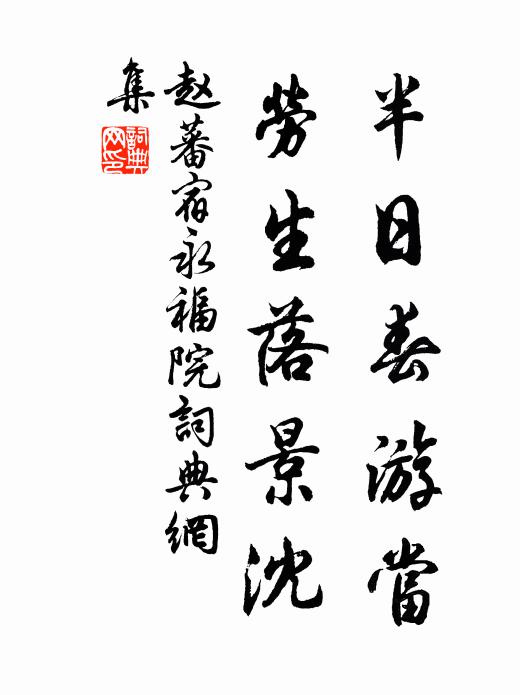 半日春游當
勞生落景沈
赵蕃宿永福院詞典網
集
詞典网印